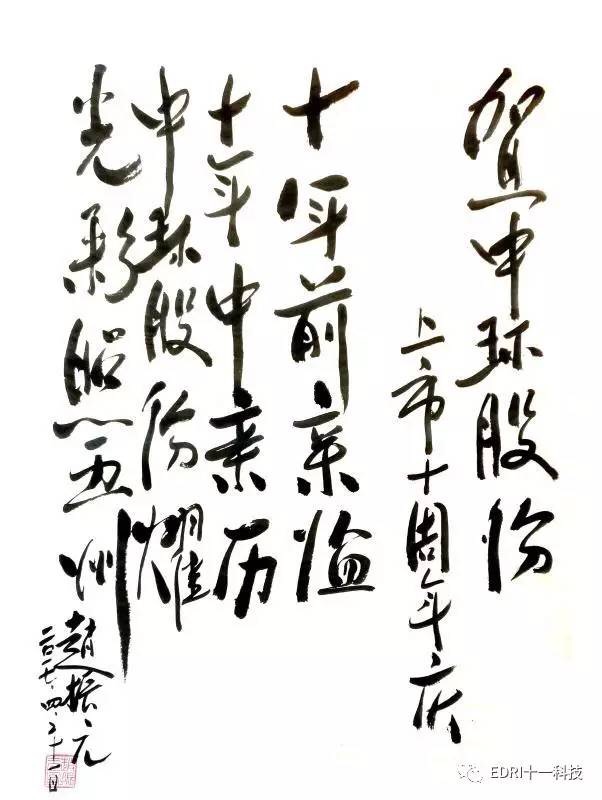 贺中环股份
上市十周年庆
十年前亲临
十年中亲历
中环股份耀
光彩照五州
赵振元
二〇一七、四、二十一日
EDRI十一科技